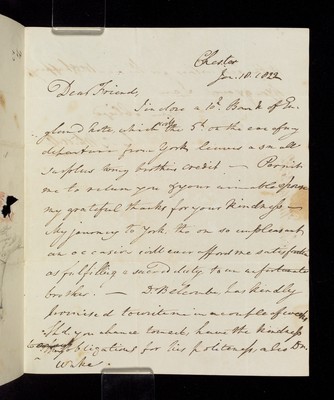 Chester
Jan. 10. 1822
Dear Friend,
I inclose a 10£. Bank of En-
gland Note, which with the 5£. on the eve of my
departure from York leaves a small
surplus to my brothers credit — Permit
me to return you & your amiable spouse
my grateful thanks for your kindness —
My journey to York tho' on so unpleasant
an occasion will ever afford me satisfaction
as fulfilling a sacred duty to an unfortunate
brother. — Dr Belcombe has kindly
promised to write in a couple of weeks
Shd. you chance to meet, have the kindness
to obligations for his politeness also Dr.
Wake.